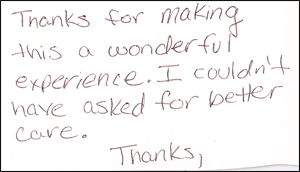 Thanks for making
this a wonderful
experience. I couldn't
have asked for better
care.
Thanks,